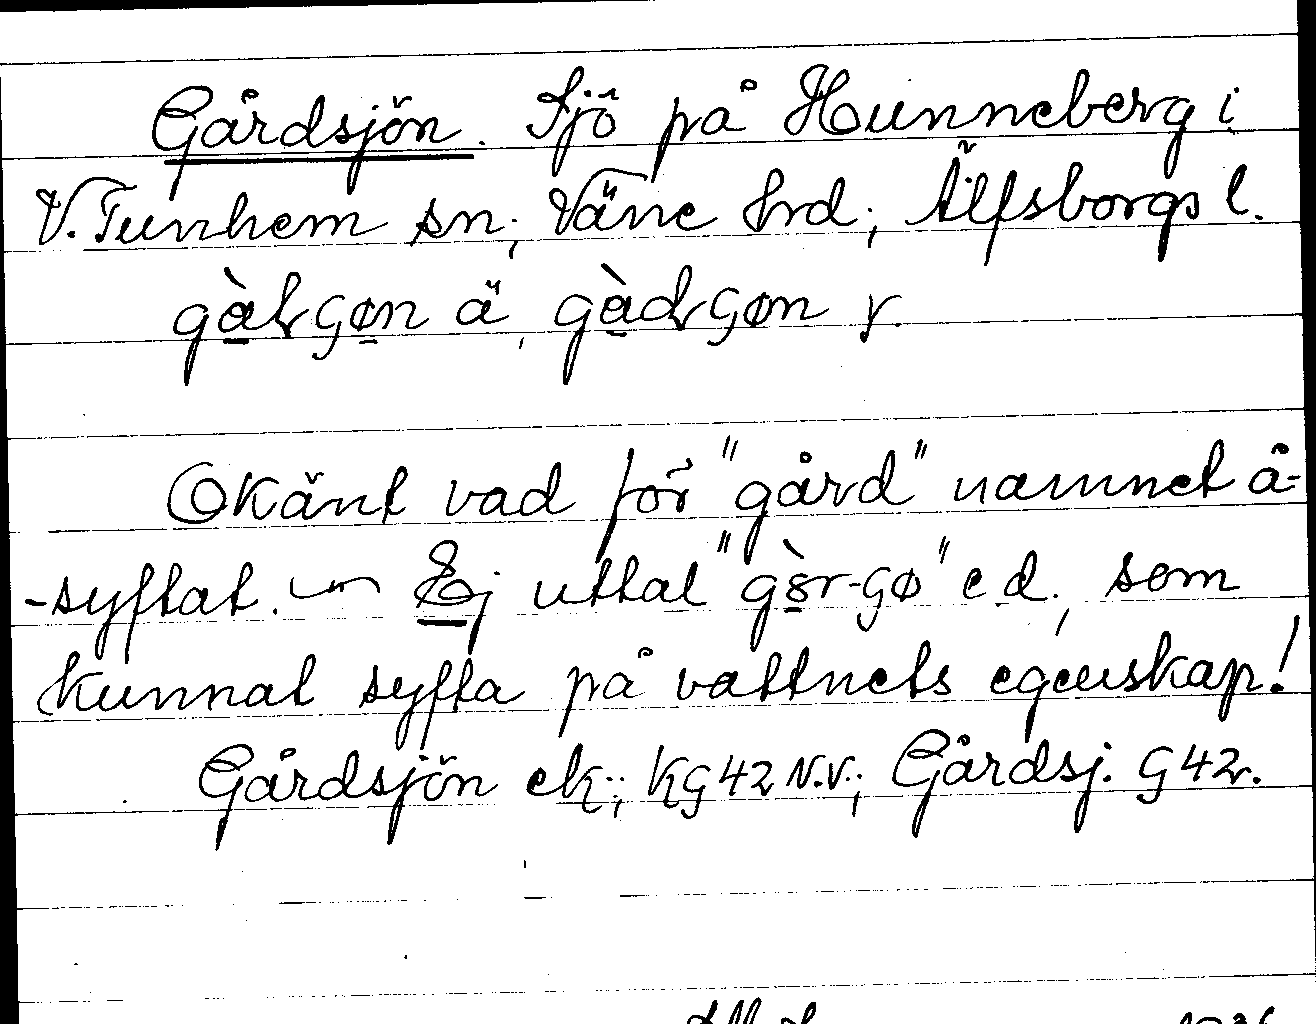 Gårdsjön. Sjö på Hunneberg i
V. Tunhem sn; Väne hrd; Älfsborgs l.
ä, y.
Okänt vad för "gård" namnet å-
-syftat. — Ej uttal e.d., som
kunnat syfta på vattnets egenskap!
Gårdsjön ek; KG42 N.V.; Gårdsj. G42.